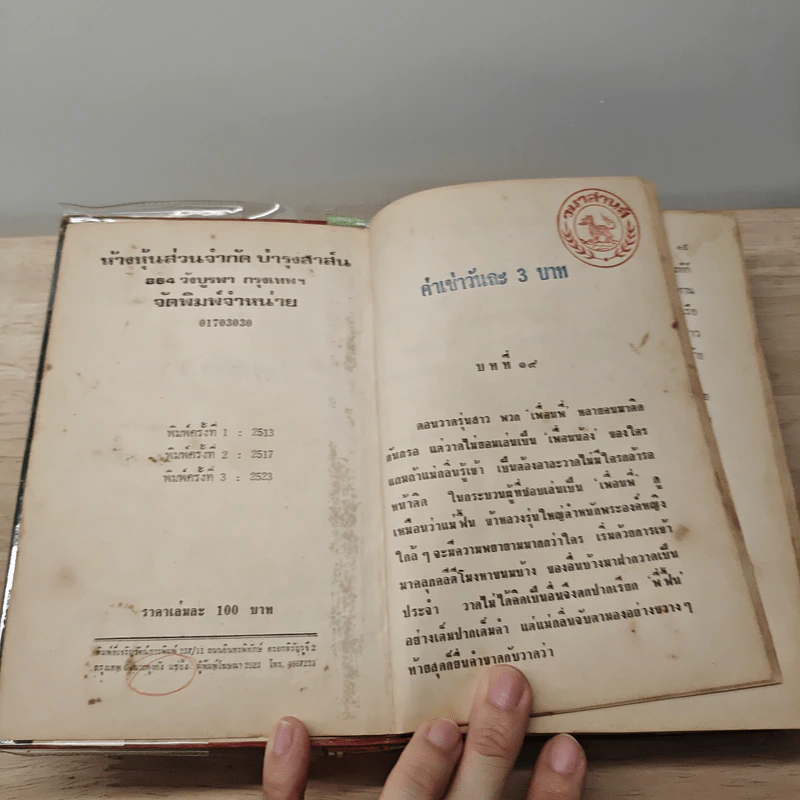 ห้างหุ้นส่วนจำกัด บำรุงสาส์น
864 วังบูรพา กรุงเทพฯ
จัดพิมพ์จำหน่าย
01703030
พิมพ์ครั้งที่ 1 : 2513
พิมพ์ครั้งที่ 2 : 2517
พิมพ์ครั้งที่ 3 : 2523
ราคาเล่มละ 100 บาท
ถนนอินทรพิทักษ์
ผู้พิมพ์โฆษณา 2523 โทร.
วนาสาส์น
ค่าเช่าวันละ 3 บาท
บทที่ ๑๙
ตอนวาดรุ่นสาว พวก 'เพื่อนพี่' หลายคนมาติด
กันกรอ แต่วาดไม่ยอมเล่นเป็น 'เพื่อนน้อง' ของใคร
แถมถ้าแม่กลิ่นรู้เข้า เป็นต้องอาละวาดไม่มีใครกล้ารอ
หน้าติด ในกระบวนผู้ที่ชอบเล่นเป็น 'เพื่อนพี่' ดู
เหมือนว่าแม่ฟื้น ข้าหลวงรุ่นใหญ่ตำหนักพระองค์หญิง
ใกล้ ๆ จะมีความพยายามมากกว่าใคร เริ่มด้วยการเข้า
มาคลุกคลีตีโมงหาขนมบ้าง ของอื่นบ้างมาฝากวาดเป็น
ประจำ วาดไม่ได้คิดเป็นอื่นจึงตกปากเรียก 'พี่ฟื้น'
อย่างเต็มปากเต็มคำ แต่แม่กลิ่นจับตามองอย่างขวาง ๆ
ท้ายสุดก็ยื่นคำขาดกับวาดว่า
๑๕